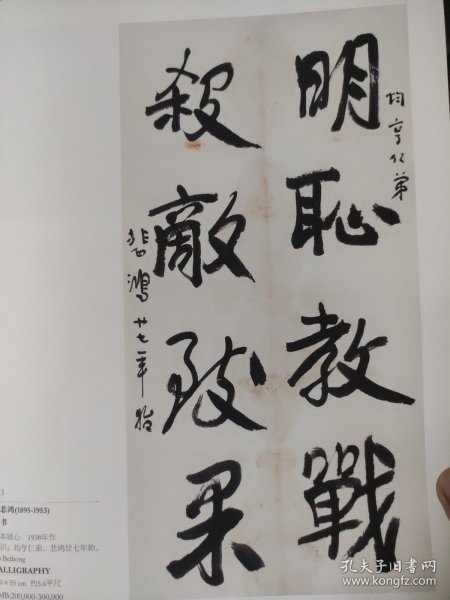 均亨仁弟
明恥教戰
殺敵致果
悲鴻廿七年始
3
悲鸿(1895-1953)
书
本镜心 1938年作
识：均亨仁弟，悲鸿廿七年始。
Beihong
ALLIGRAPHY
0×55 cm 约5.6平尺
MB:200,000-300,000
孔夫子旧书网
www.kongfz.com